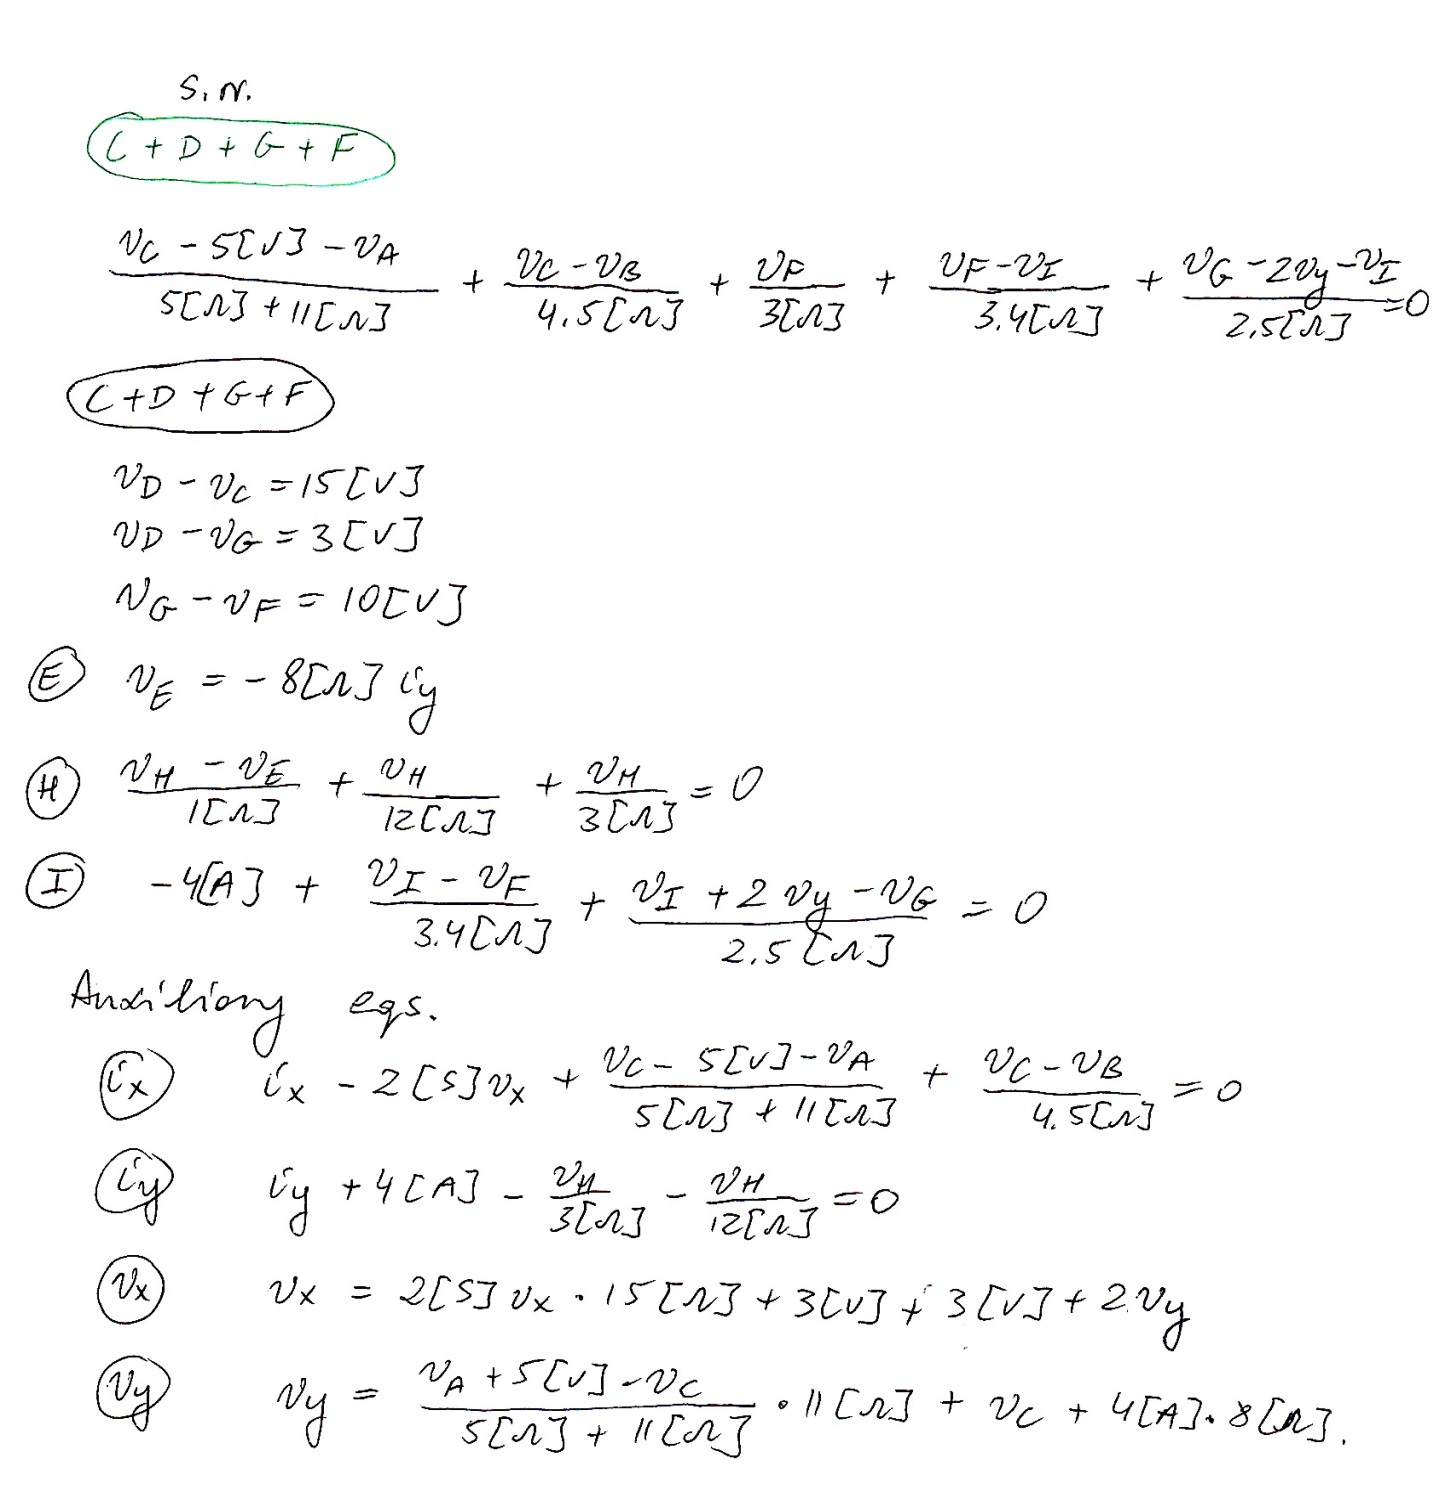 S.N.
C + D + G + F
(v_C - 5[V] - v_A)/(5[Ω] + 11[Ω]) + (v_C - v_B)/(4.5[Ω]) + v_F/(3[Ω]) + (v_F - v_I)/(3.4[Ω]) + (v_G - 2v_y - v_I)/(2.5[Ω]) = 0
C + D + G + F
v_D - v_C = 15[V]
v_D - v_G = 3[V]
v_G - v_F = 10[V]
E v_E = - 8[Ω] i_y
H (v_H - v_E)/(1[Ω]) + v_H/(12[Ω]) + v_H/(3[Ω]) = 0
I -4[A] + (v_I - v_F)/(3.4[Ω]) + (v_I + 2 v_y - v_G)/(2.5[Ω]) = 0
Auxiliary eqs.
i_x i_x - 2[S]v_x + (v_C - 5[V] - v_A)/(5[Ω] + 11[Ω]) + (v_C - v_B)/(4.5[Ω]) = 0
i_y i_y + 4[A] - v_H/(3[Ω]) - v_H/(12[Ω]) = 0
v_x v_x = 2[S] v_x · 15[Ω] + 3[V] + 3[V] + 2 v_y
v_y v_y = (v_A + 5[V] - v_C)/(5[Ω] + 11[Ω]) · 11[Ω] + v_C + 4[A] · 8[Ω].